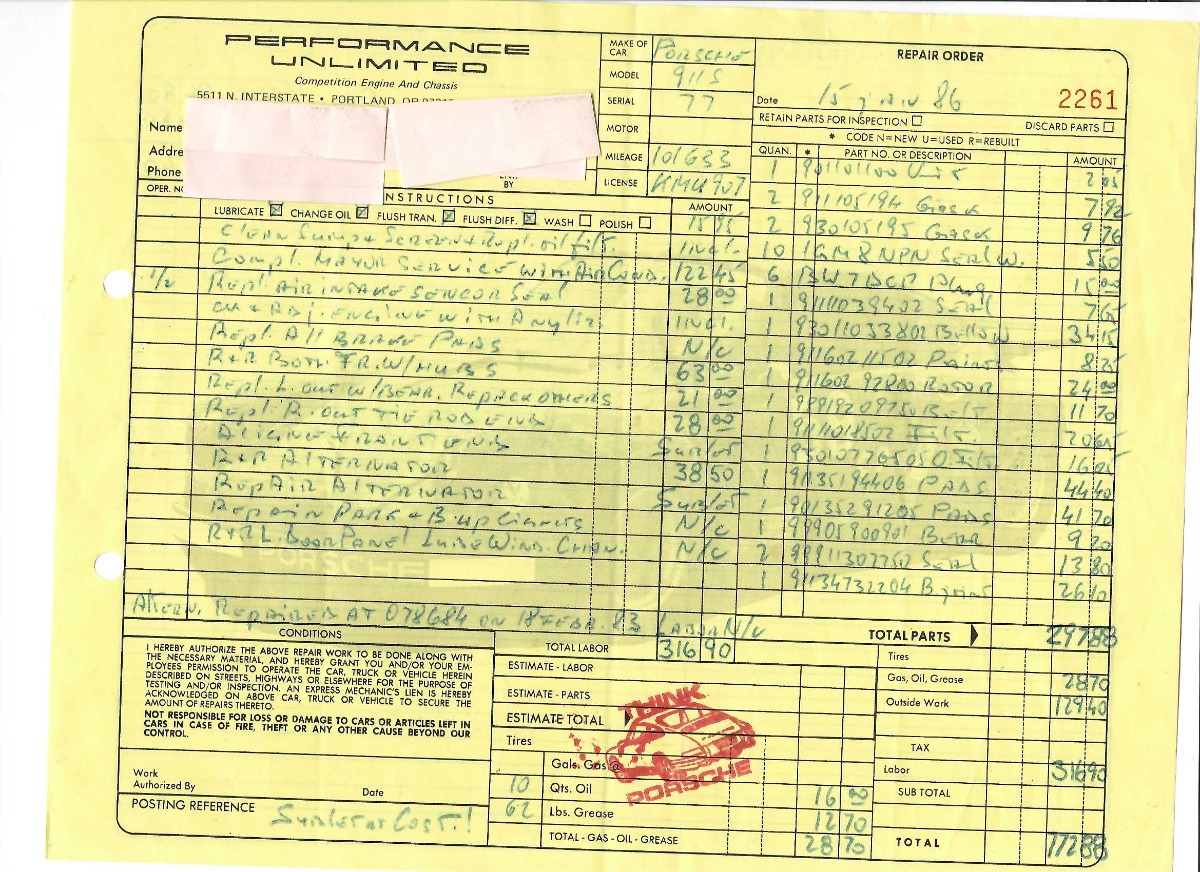 PERFORMANCE
UNLIMITED
Competition Engine And Chassis
5511 N. INTERSTATE • PORTLAND, OR
Name
Addre
Phone
BY
OPER. NO
NSTRUCTIONS
MAKE OF CAR PORSCHE
MODEL 911S
SERIAL 77
MOTOR
MILEAGE 101633
LICENSE KMU907
REPAIR ORDER
Date 15 JAN 86
2261
RETAIN PARTS FOR INSPECTION DISCARD PARTS
* CODE N=NEW U=USED R=REBUILT
QUAN. * PART NO. OR DESCRIPTION AMOUNT
1 2 05
2 911105194 Gask 7 92
2 930105195 Gask 9 76
10 Seal W. 5 50
6 Plug 15 00
1 Seal 7 65
1 34 15
1 Points 8 25
1 Rotor 24 00
1 Belt 11 70
1 20 65
1 16 05
1 PADS 44 40
1 PADS 41 70
1 99905900901 BEAR 9 20
2 Seal 13 80
1 91134732204 26 10
TOTAL PARTS 297 88
AMOUNT
LUBRICATE CHANGE OIL FLUSH TRAN. FLUSH DIFF. WASH POLISH 15 95
Clean Sump + Screen + Repl. oil filt. INCL.
Compl. MAYOR SERVICE WITH AIR COND. 122 45
1/2 Repl AIR INTAKE SENCOR Seal 28 00
ADJ. ENGINE WITH INCL.
Repl. All BRAKE PADS N/C
R+R BOTH FR. W/HUBS 63 00
Repl. L. OUT W/BEAR. REPACK OTHERS 21 00
Repl. R. OUT TIE ROD END 28 00
ALIGNE FRONT END Sublet
R+R ALTERNATOR 38 50
RepAIR ALTERNATOR Sublet
REPAIR PARK + B.up Lights N/C
R+R L. DOOR PANEL LUBE WIND. CHAN. N/C
Altern. REPAIRED AT 078684 ON 18 FEBR. 83 LABOR N/C
CONDITIONS
I HEREBY AUTHORIZE THE ABOVE REPAIR WORK TO BE DONE ALONG WITH
THE NECESSARY MATERIAL, AND HEREBY GRANT YOU AND/OR YOUR EM-
PLOYEES PERMISSION TO OPERATE THE CAR, TRUCK OR VEHICLE HEREIN
DESCRIBED ON STREETS, HIGHWAYS OR ELSEWHERE FOR THE PURPOSE OF
TESTING AND/OR INSPECTION. AN EXPRESS MECHANIC'S LIEN IS HEREBY
ACKNOWLEDGED ON ABOVE CAR, TRUCK OR VEHICLE TO SECURE THE
AMOUNT OF REPAIRS THERETO.
NOT RESPONSIBLE FOR LOSS OR DAMAGE TO CARS OR ARTICLES LEFT IN
CARS IN CASE OF FIRE, THEFT OR ANY OTHER CAUSE BEYOND OUR
CONTROL.
Work
Authorized By Date
POSTING REFERENCE
Sublet at Cost!
TOTAL LABOR 316 90
ESTIMATE - LABOR
ESTIMATE - PARTS
ESTIMATE TOTAL
Tires
Gals. Gas @
10 Qts. Oil 16 00
62 Lbs. Grease 12 70
TOTAL - GAS - OIL - GREASE 28 70
THINK
PORSCHE
PORSCHE
Tires
Gas, Oil, Grease 28 70
Outside Work 129 40
TAX
Labor 316 90
SUB TOTAL
TOTAL 772 88